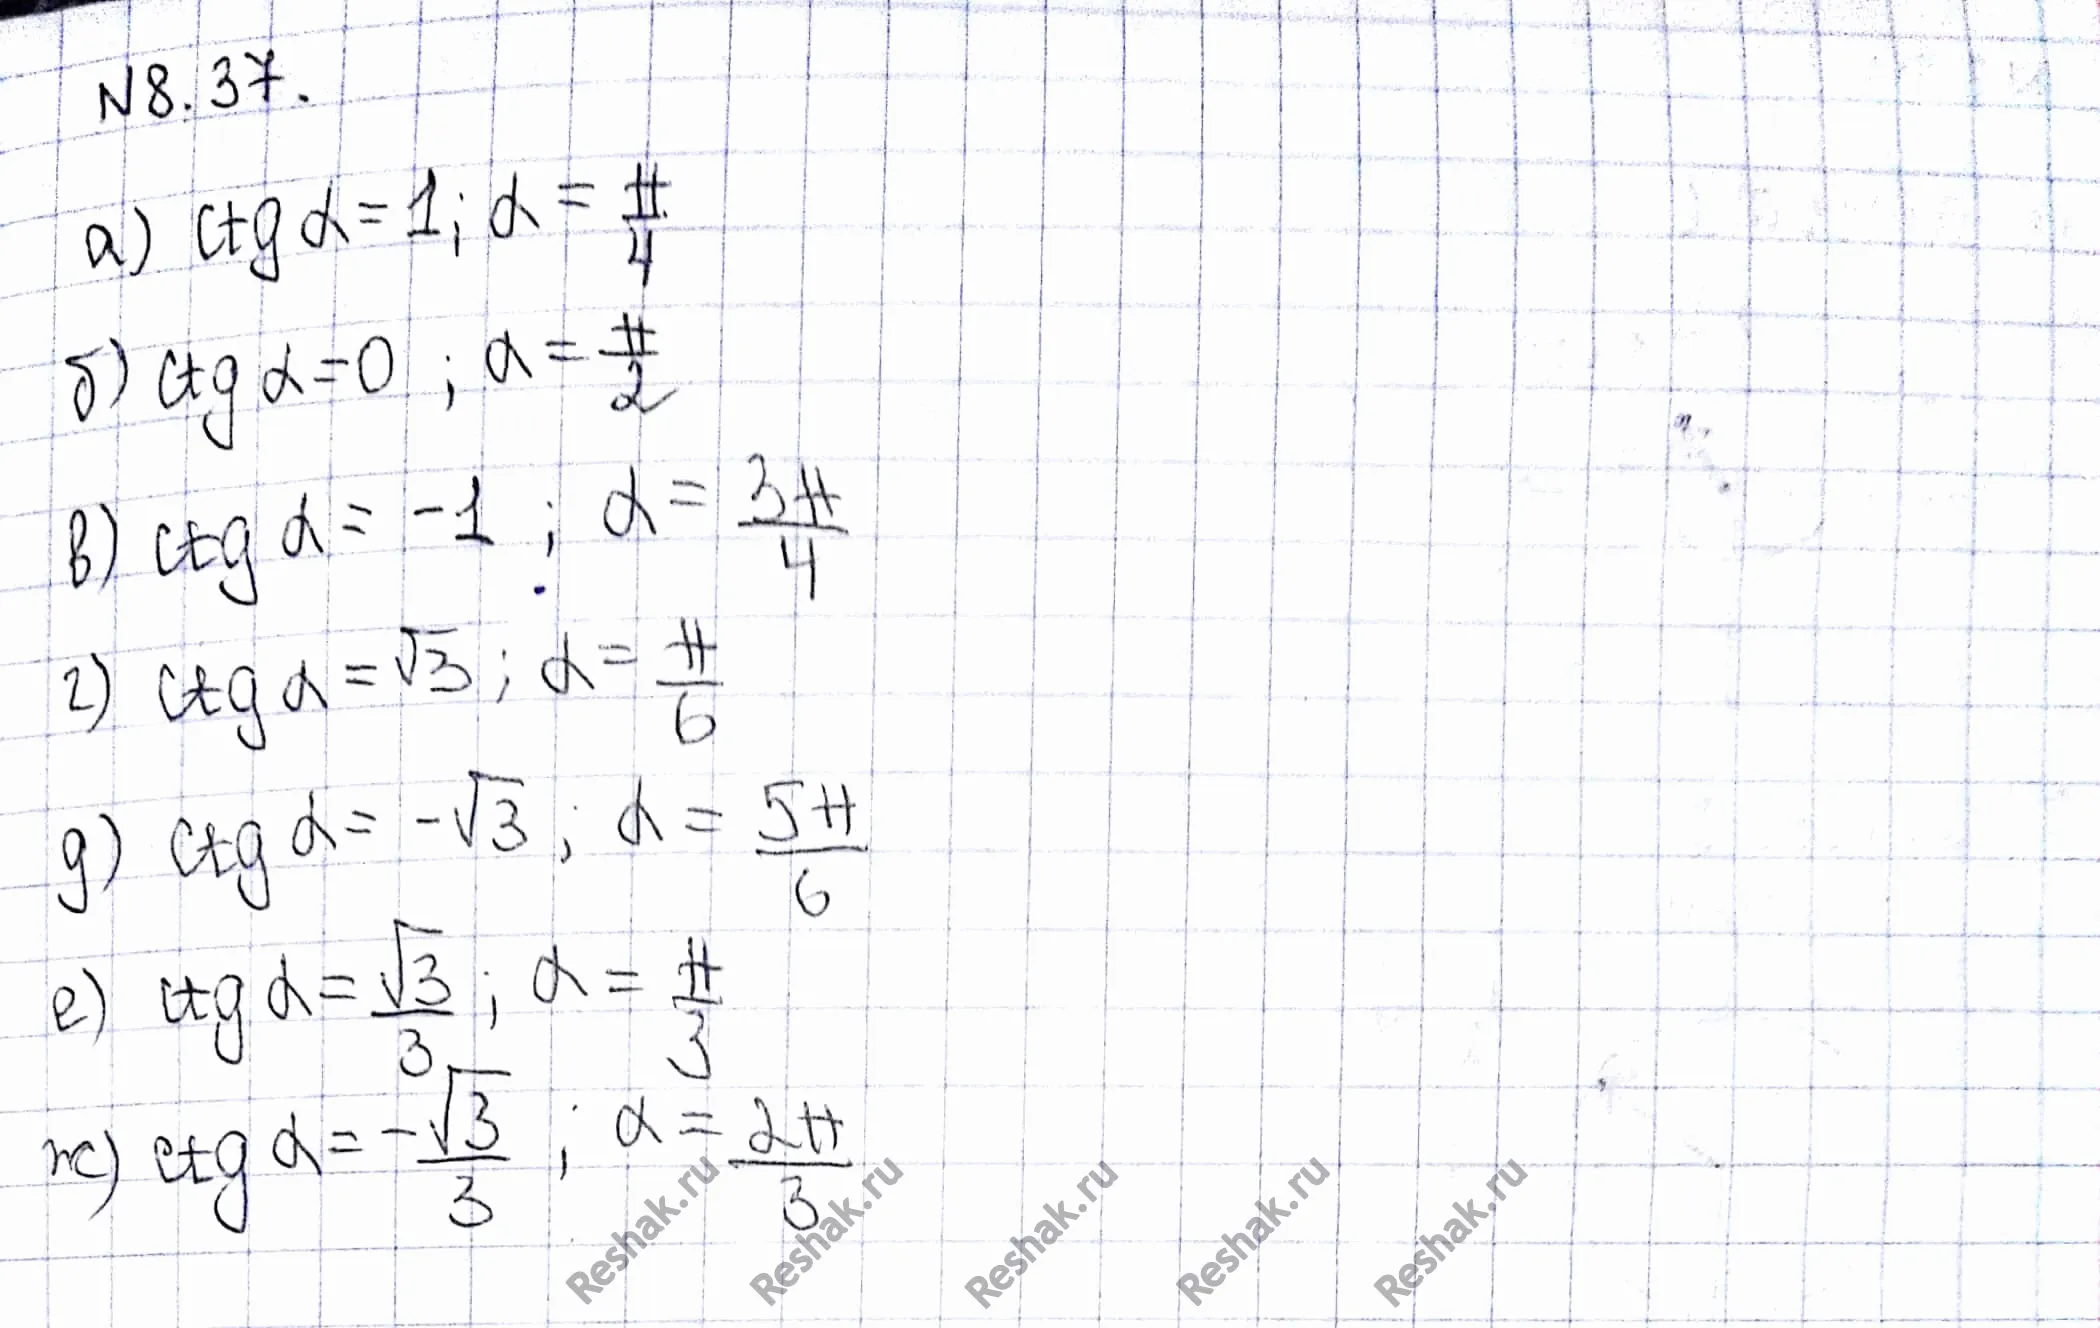 N8.37.
а) ctg α = 1; α = π/4
б) ctg α = 0 ; α = π/2
в) ctg α = -1 ; α = 3π/4
г) ctg α = √3 ; α = π/6
д) ctg α = -√3 ; α = 5π/6
е) ctg α = √3/3 ; α = π/3
ж) ctg α = -√3/3 ; α = 2π/3
Reshak.ru Reshak.ru Reshak.ru Reshak.ru Reshak.ru